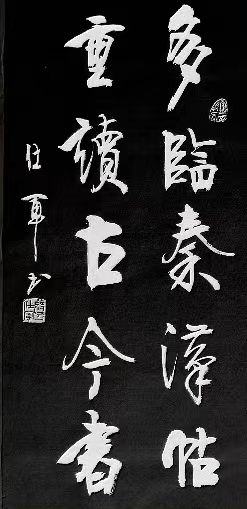 多臨秦漢帖
重讀古今書
任軍书